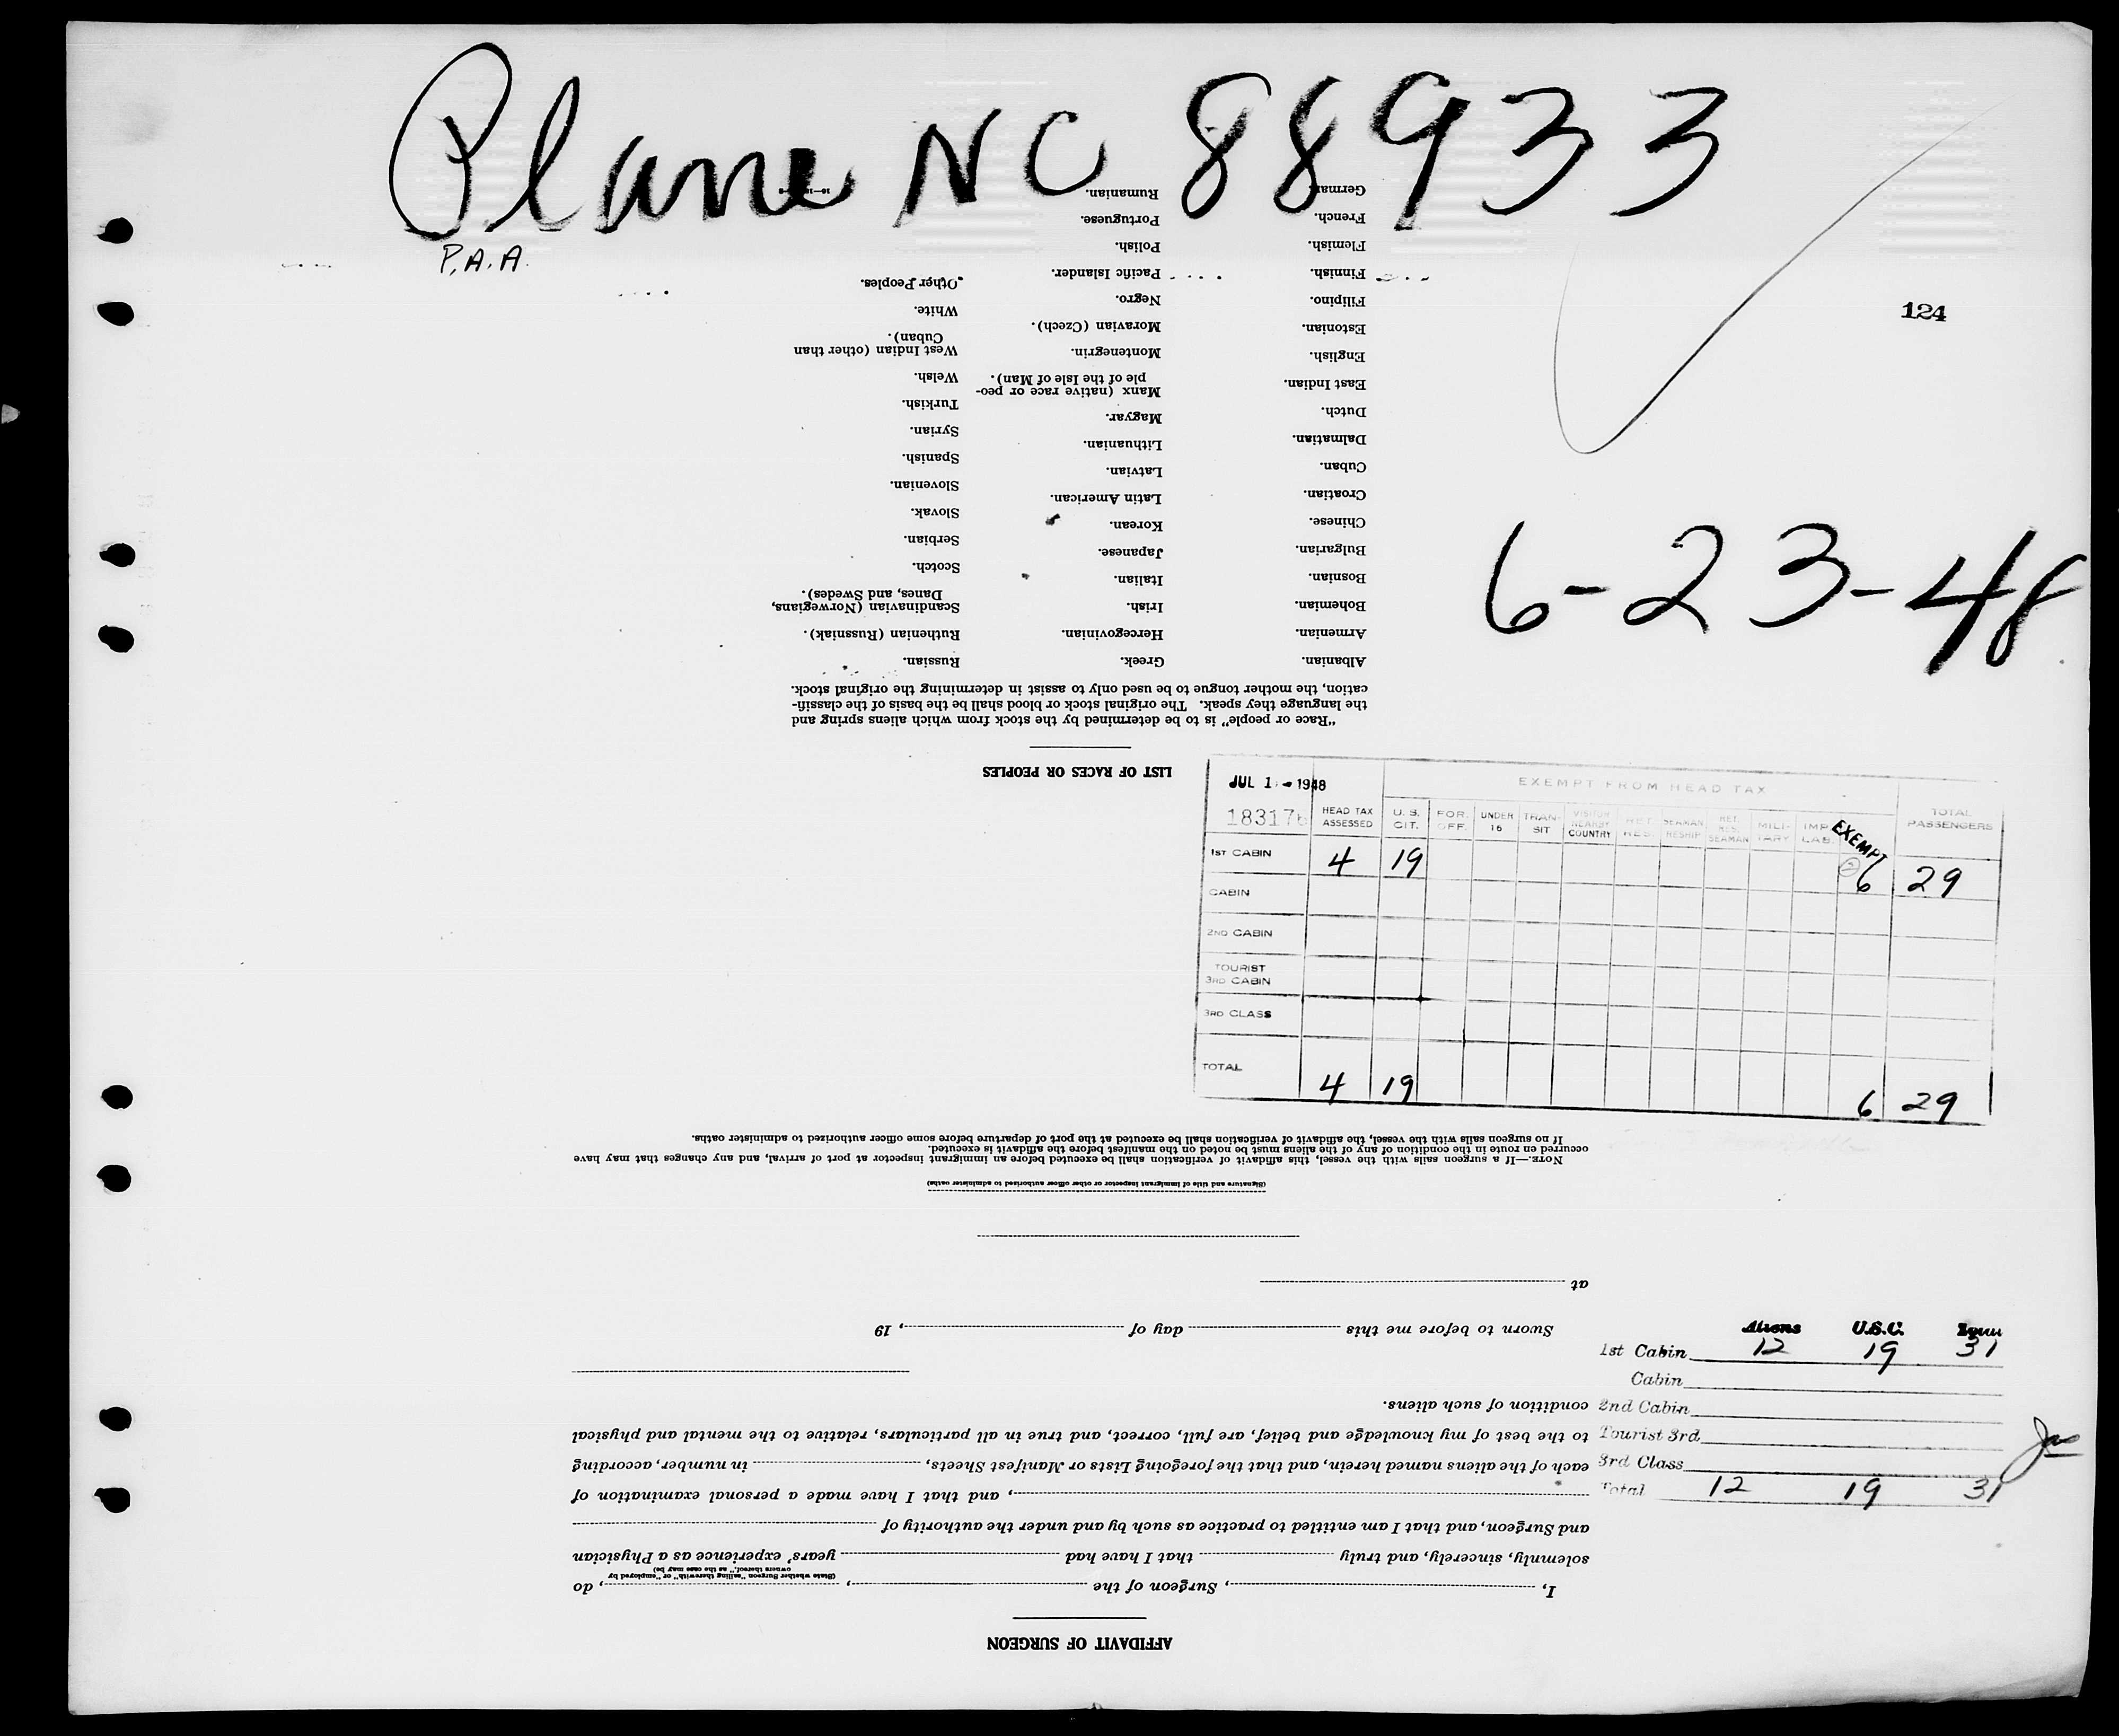 Plane NC 88933
P.A.A.
124
6-23-48
JUL 1 - 1948
EXEMPT FROM HEAD TAX
HEAD TAX ASSESSED
U. S. CIT.
FOR. OFF.
UNDER 16
TRAN- SIT
VISITOR NEARBY COUNTRY
RET. RES.
SEAMAN RESHIP
RET. RES. SEAMAN
MILI- TARY
IMP. LAB.
EXEMPT
TOTAL PASSENGERS
1ST CABIN 4 19 6 29
CABIN
2ND CABIN
TOURIST
3RD CABIN
3RD CLASS
TOTAL 4 19 6 29
Aliens U.S.C.
1st Cabin 12 19 31
Cabin
2nd Cabin
Tourist 3rd
3rd Class
Total 12 19 31
AFFIDAVIT OF SURGEON
I, , Surgeon of the , , do
(State whether Surgeon "sailing therewith" or "employed by
owners thereof," as the case may be)
solemnly, sincerely, and truly that I have had years' experience as a Physician
and Surgeon, and that I am entitled to practice as such by and under the authority of
, and that I have made a personal examination of
each of the aliens named herein, and that the foregoing Lists or Manifest Sheets, in number, according
to the best of my knowledge and belief, are full, correct, and true in all particulars, relative to the mental and physical
condition of such aliens.
Sworn to before me this day of , 19
at
(Signature and title of immigrant inspector or other officer authorized to administer oaths)
NOTE.—If a surgeon sails with the vessel, this affidavit of verification shall be executed before an immigrant inspector at port of arrival, and any changes that may have
occurred en route in the condition of any of the aliens must be noted on the manifest before the affidavit is executed.
If no surgeon sails with the vessel, the affidavit of verification shall be executed at the port of departure before some officer authorized to administer oaths.
LIST OF RACES OR PEOPLES
"Race or people" is to be determined by the stock from which aliens spring and
the language they speak. The original stock or blood shall be the basis of the classifi-
cation, the mother tongue to be used only to assist in determining the original stock.
Albanian.
Armenian.
Bohemian.
Bosnian.
Bulgarian.
Chinese.
Croatian.
Cuban.
Dalmatian.
Dutch.
East Indian.
English.
Estonian.
Filipino.
Finnish.
Flemish.
French.
German.
Greek.
Hercegovinian.
Irish.
Italian.
Japanese.
Korean.
Latin American.
Latvian.
Lithuanian.
Magyar.
Manx (native race or peo-
ple of the Isle of Man).
Montenegrin.
Moravian (Czech).
Negro.
Pacific Islander.
Polish.
Portuguese.
Rumanian.
Russian.
Ruthenian (Russniak).
Scandinavian (Norwegians,
Danes, and Swedes).
Scotch.
Serbian.
Slovak.
Slovenian.
Spanish.
Syrian.
Turkish.
Welsh.
West Indian (other than
Cuban).
White.
Other Peoples.